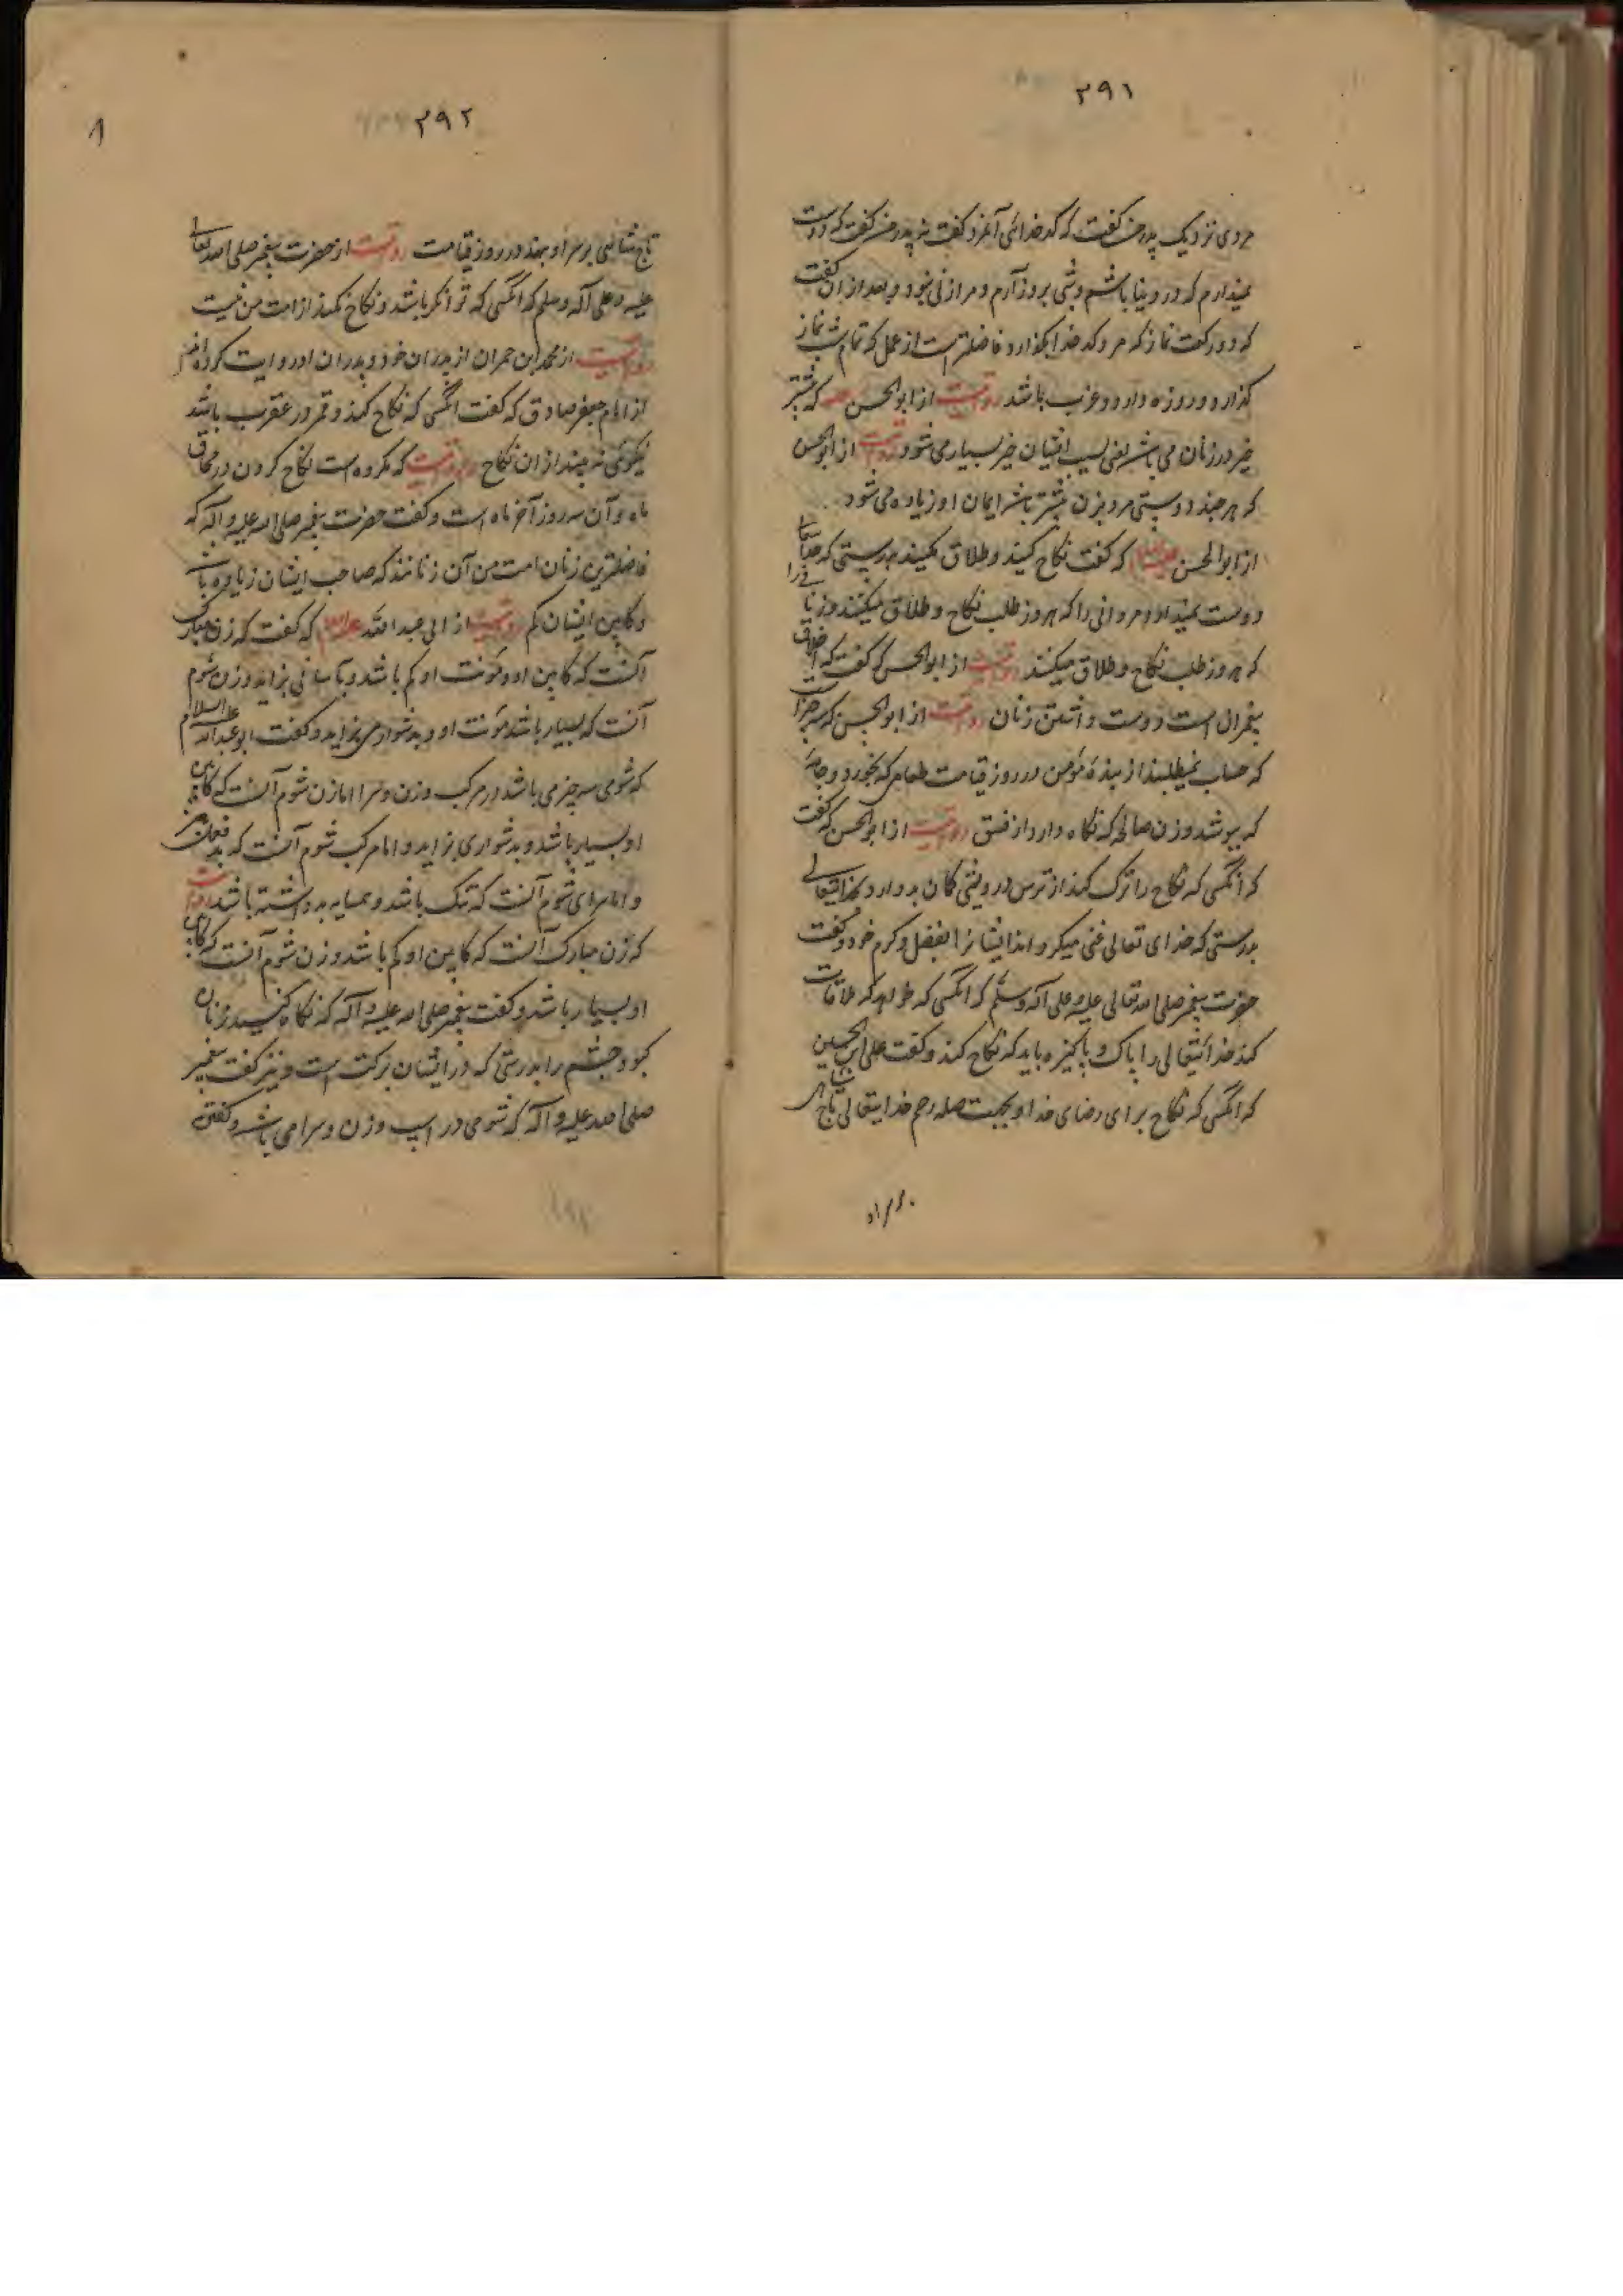 ۲۹۱
مردی نزدیک پدر من گفت که کدخدائی آنمرد گفت نه پدر من گفت که دوست
نمیدارم که در دنیا باشم و شبی بروز آرم و مرا زنی نبود و بعد از آن گفت
که دو رکعت نماز که مرد کدخدا بگذارد فاضلتر است از عمل که تمام شب نماز
گذارد و روزه دارد و عزب باشد روایتست از ابوالحسن که بیشتر
خیر در زنان می باشد یعنی بسبب ایشان خیر بسیار می شود روایتست از ابوالحسن
که هر چند دوستی مرد بزن بیشتر باشد ایمان او زیاده می شود
از ابوالحسن علیه السلام که گفت نکاح کنید و طلاق مکنید بدرستی که خدایتعالی
دوست نمیدارد مردانی را که هر روز طلب نکاح و طلاق میکنند و زنانی را
که هر روز طلب نکاح و طلاق میکنند روایتست از ابوالحسن که گفت که اخلاق
پیغمبران است دوست داشتن زنان روایتست از ابوالحسن که سه چیز است
که حساب نمیطلبند از بندهٔ مؤمن در روز قیامت طعامی که بخورد و جامهٔ
که بپوشد و زن صالحه که نگاه دارد از فسق روایتست از ابوالحسن که گفت
که آنکسی که نکاح را ترک کند از ترس درویشی گمان بد دارد بخدایتعالی
بدرستی که خدای تعالی غنی میگرداند ایشانرا بفضل و کرم خود و گفت
حضرت پیغمبر صلی الله تعالی علیه و علی آله وسلم که آنکسی که خواهد که ملاقات
کند خدایتعالی را پاک و پاکیزه باید که نکاح کند و گفت علی ابن الحسین
که آنکسی که نکاح برای رضای خدا و بجهت صله رحم خدایتعالی تاج شاهی
۲۹۲
تاج شاهی بر سر او بنهد در روز قیامت روایتست از حضرت پیغمبر صلی الله تعالی
علیه و علی آله وسلم که آنکسی که توانگر باشد و نکاح نکند از امت من نیست
روایتست از محمد ابن حمران از پدران خود و پدران او روایت کرده اند
از امام جعفر صادق که گفت آنکسی که نکاح کند و قمر در عقرب باشد
نیکوئی نه بیند از آن نکاح و روایتست که مکروه است نکاح کردن در محاق
ماه و آن سه روز آخر ماه است و گفت حضرت پیغمبر صلی الله علیه و آله که
فاضلترین زنان امت من آن زنانند که صاحب ایشان زیاده باشد
و کابین ایشان کم روایتست از ابی عبدالله علیه السلام که گفت که زن مبارک
آنست که کابین او و مؤنت او کم باشد و بآسانی بزاید و زن شوم
آنست که بسیار باشد مؤنت او و بدشواری می زاید و گفت ابو عبدالله علیه السلام
که شومی سه چیز می باشد در مرکب و زن و سرا اما زن شوم آنست که کابین
او بسیار باشد و بدشواری بزاید و اما مرکب شوم آنست که بد فعل
و اما سرای شوم آنست که تنک باشد و همسایه بد داشته باشد روایتست
که زن مبارک آنست که کابین او کم باشد و زن شوم آنست که کابین
او بسیار باشد و گفت پیغمبر صلی الله علیه و آله که نکاح کنید زنان
کبود چشم را بدرستی که در ایشان برکت است و نیز گفت پیغمبر
صلی الله علیه و آله که شومی در اسپ و زن و سرا می باشد و گفت